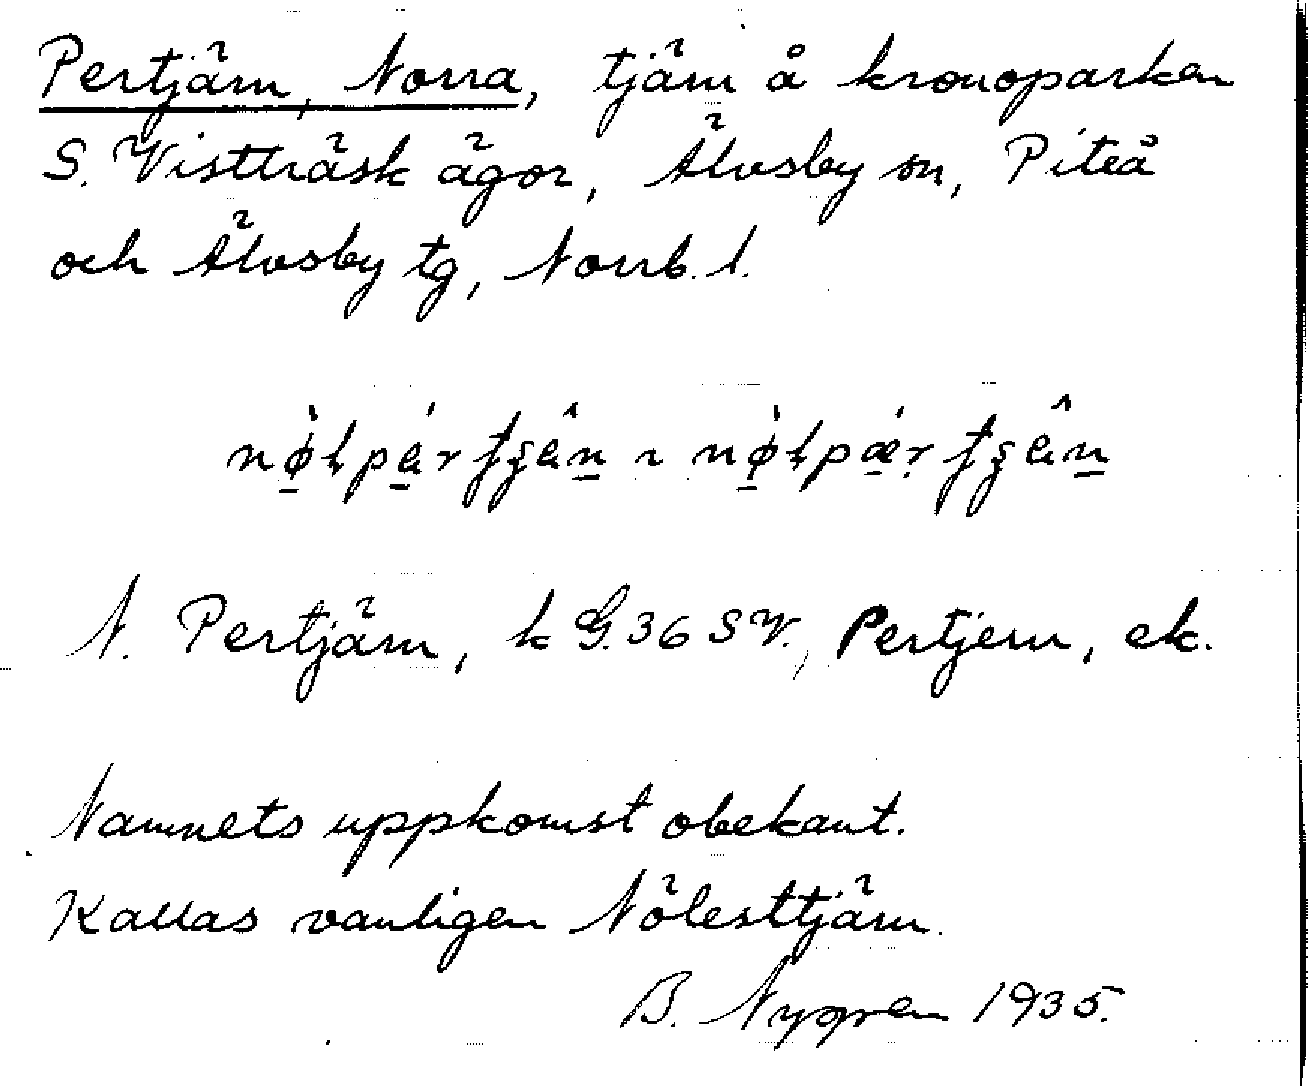 Pertjärn, Norra, tjärn å kronoparken
S. Vistträsk ägor, Älvsby sn, Piteå
och Älvsby tg, Norrb. l.
N. Pertjärn, k G. 36 SV., Pertjern, ek.
Namnets uppkomst obekant.
Kallas vanligen Nölesttjärn.
B. Nygren 1935.